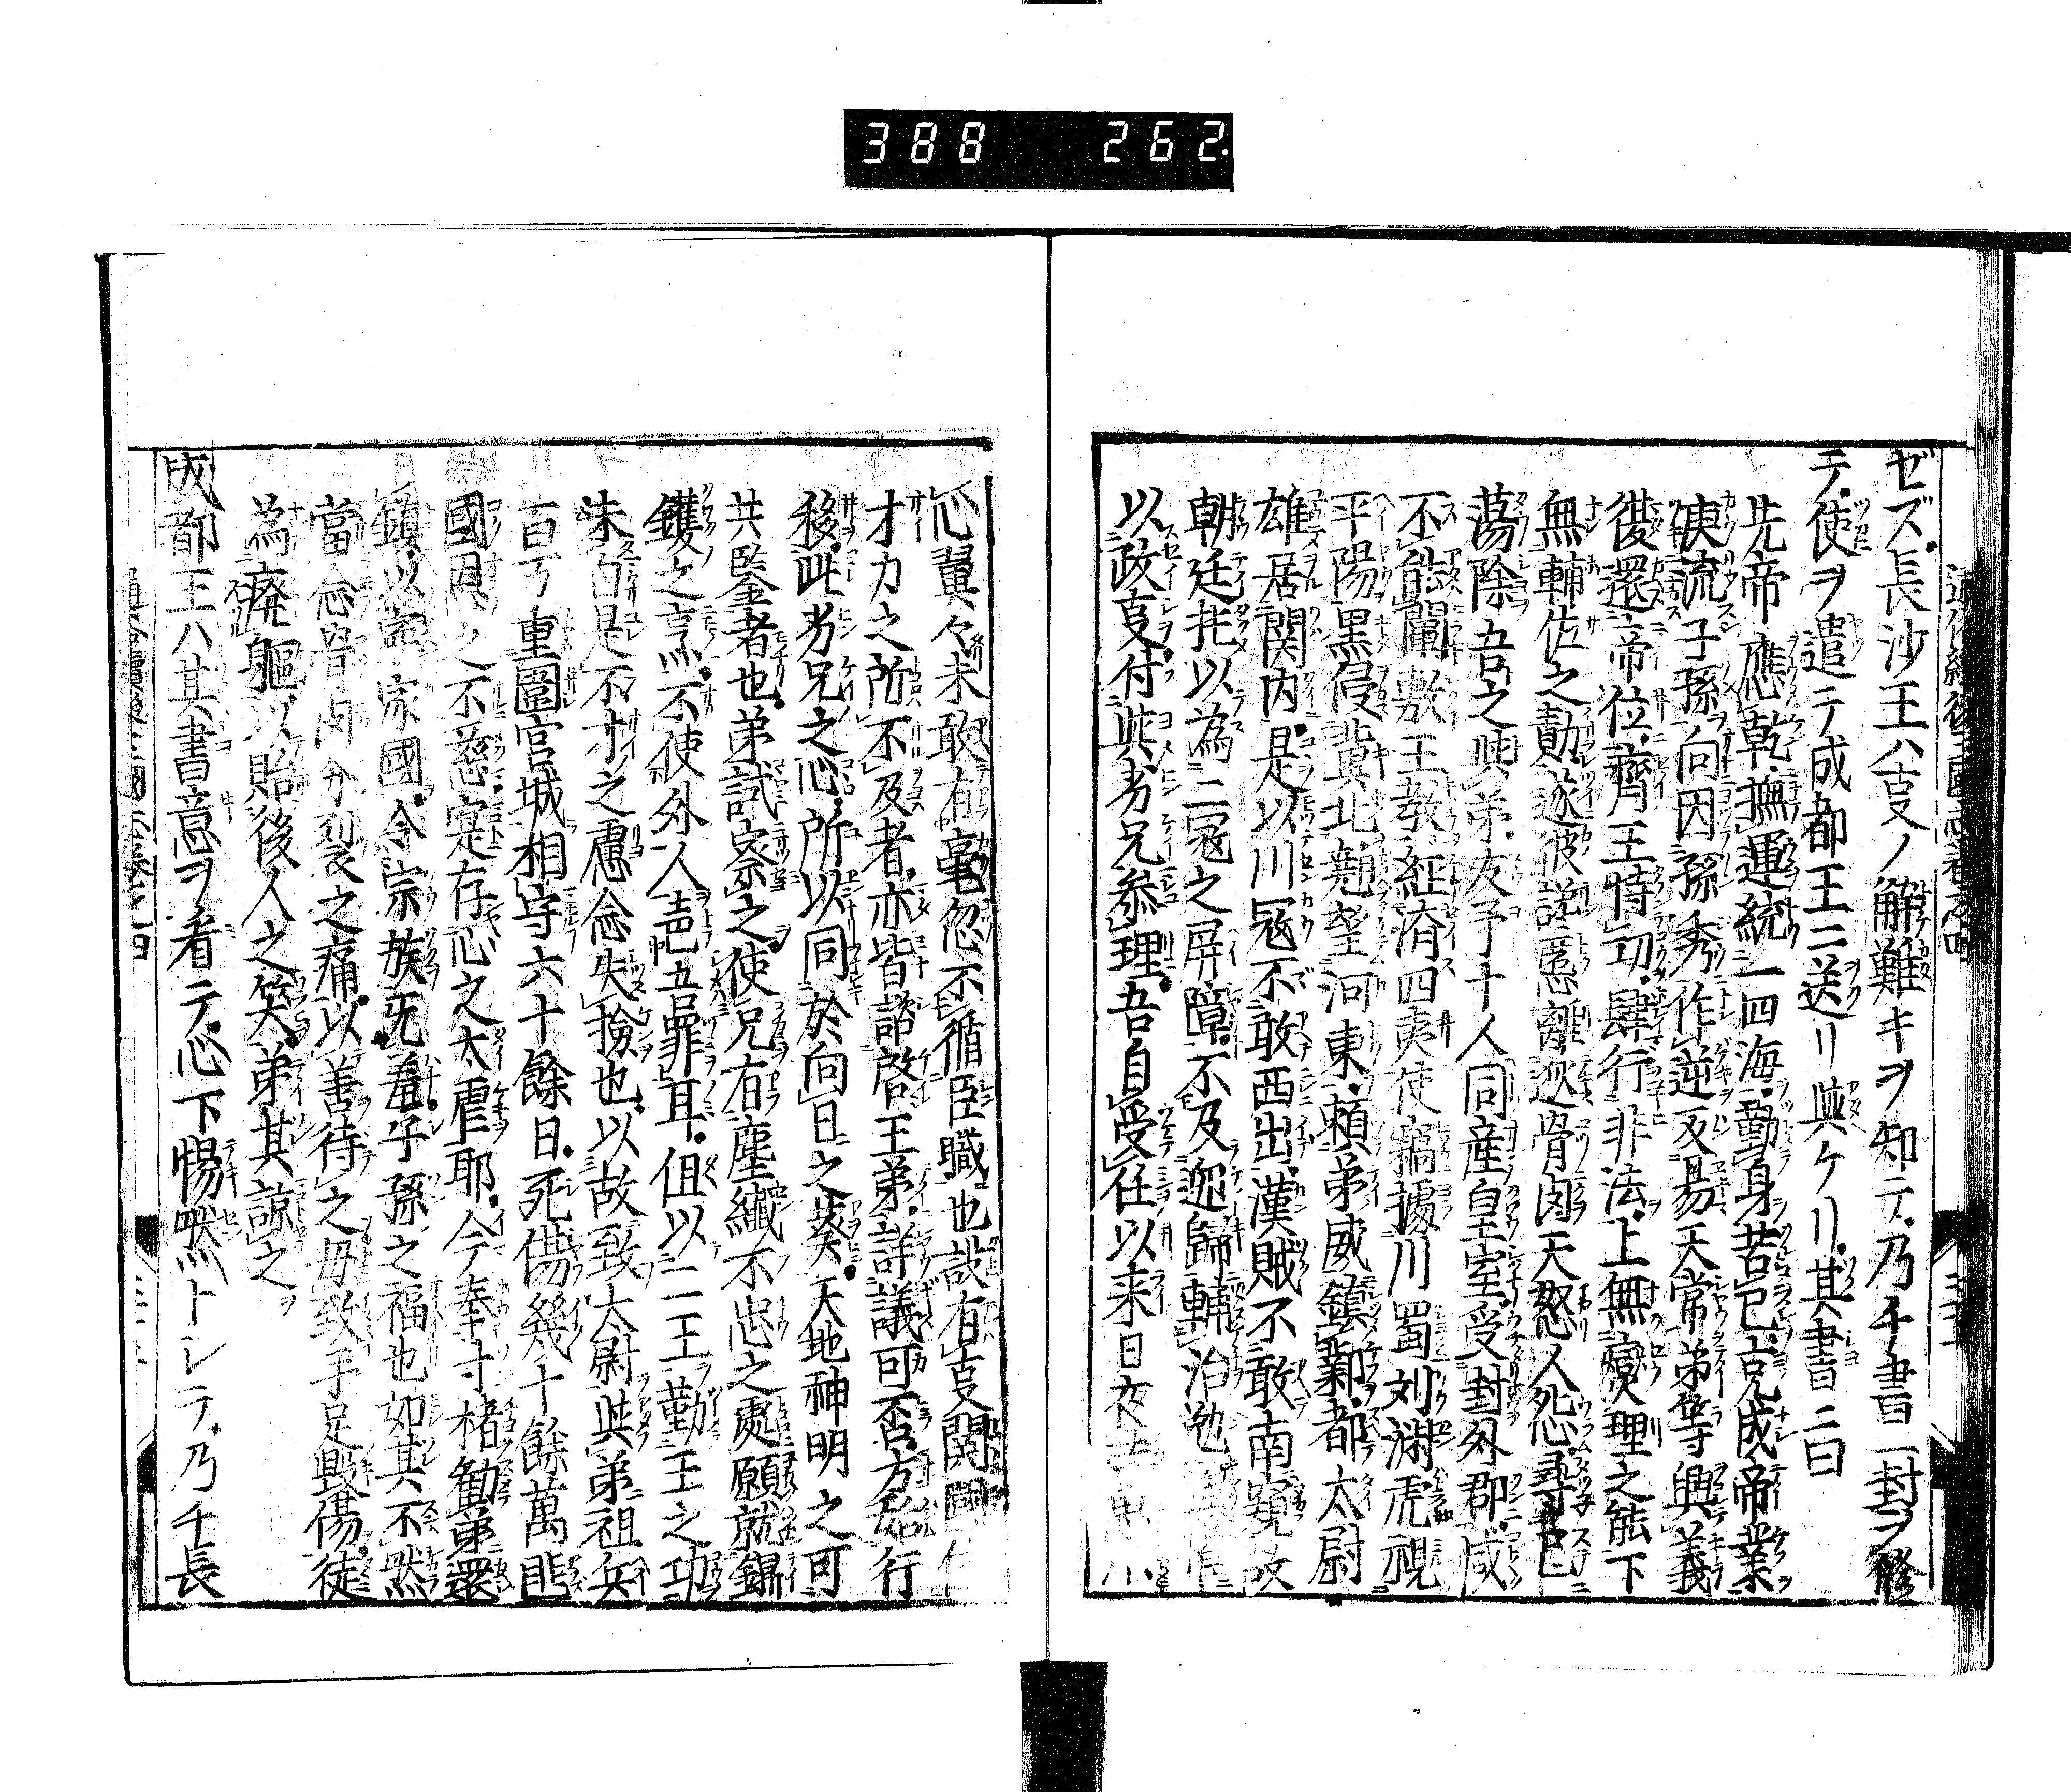 388 262
ゼズ長沙王ハ𠮷ノ解難キヲ知テ乃チ書一封ヲ修
テ使ヲ遣テ成都王ニ送リ與ケリ其書ニ曰
先帝應乾撫運統一四海勤身苦己克成帝業
庚流子孫向因孫秀作逆反易天常弟等興義
復還帝位齊王恃功肆行非法上無燮理之能下
無輔佐之勣遂彼讒慝離逖骨肉天怒人怨尋已
蕩除吾之與弟友于十人同産皇室受封外郡咸
不能闡敷王教経濟四夷使獦據川蜀刘渊虎視
平陽黒侵冀北翹望河東頼弟威鎮鄴都太尉
雄居関内是以川冦不敢西出漢賊不敢南窺故
朝廷托以為二冦之屏障不及迎歸輔治勉
以政㕝付與劣兄参理吾自受任以来日夜
心翼々未敢有毫忽不循臣職也設有㕝関國
才力之所不及者亦皆諮啓王弟詳議可否方始行
移此劣兄之心所以同於向日之葵天地神明之可
共監者也弟試察之使兄有塵纎不忠之處願就鼎
鑊之烹不使外人声吾罪耳但以二王勤王之功
朱白是不才之慮念失撿也以故致太尉與弟祖兵
百万重圍宮城相守六十餘日死傷幾十餘萬非
國恩之不慈寔存心之太虐耶今奉寸楮勧弟還
鎮以寧家國令宗族旡羞子孫之福也如其不然
當念骨肉分裂之痛以善待之毋致手足毀傷徒
為廃軀以貽後人之笑弟其諒之
成都王ハ其書意ヲ看テ心下惕然トシテ乃チ長